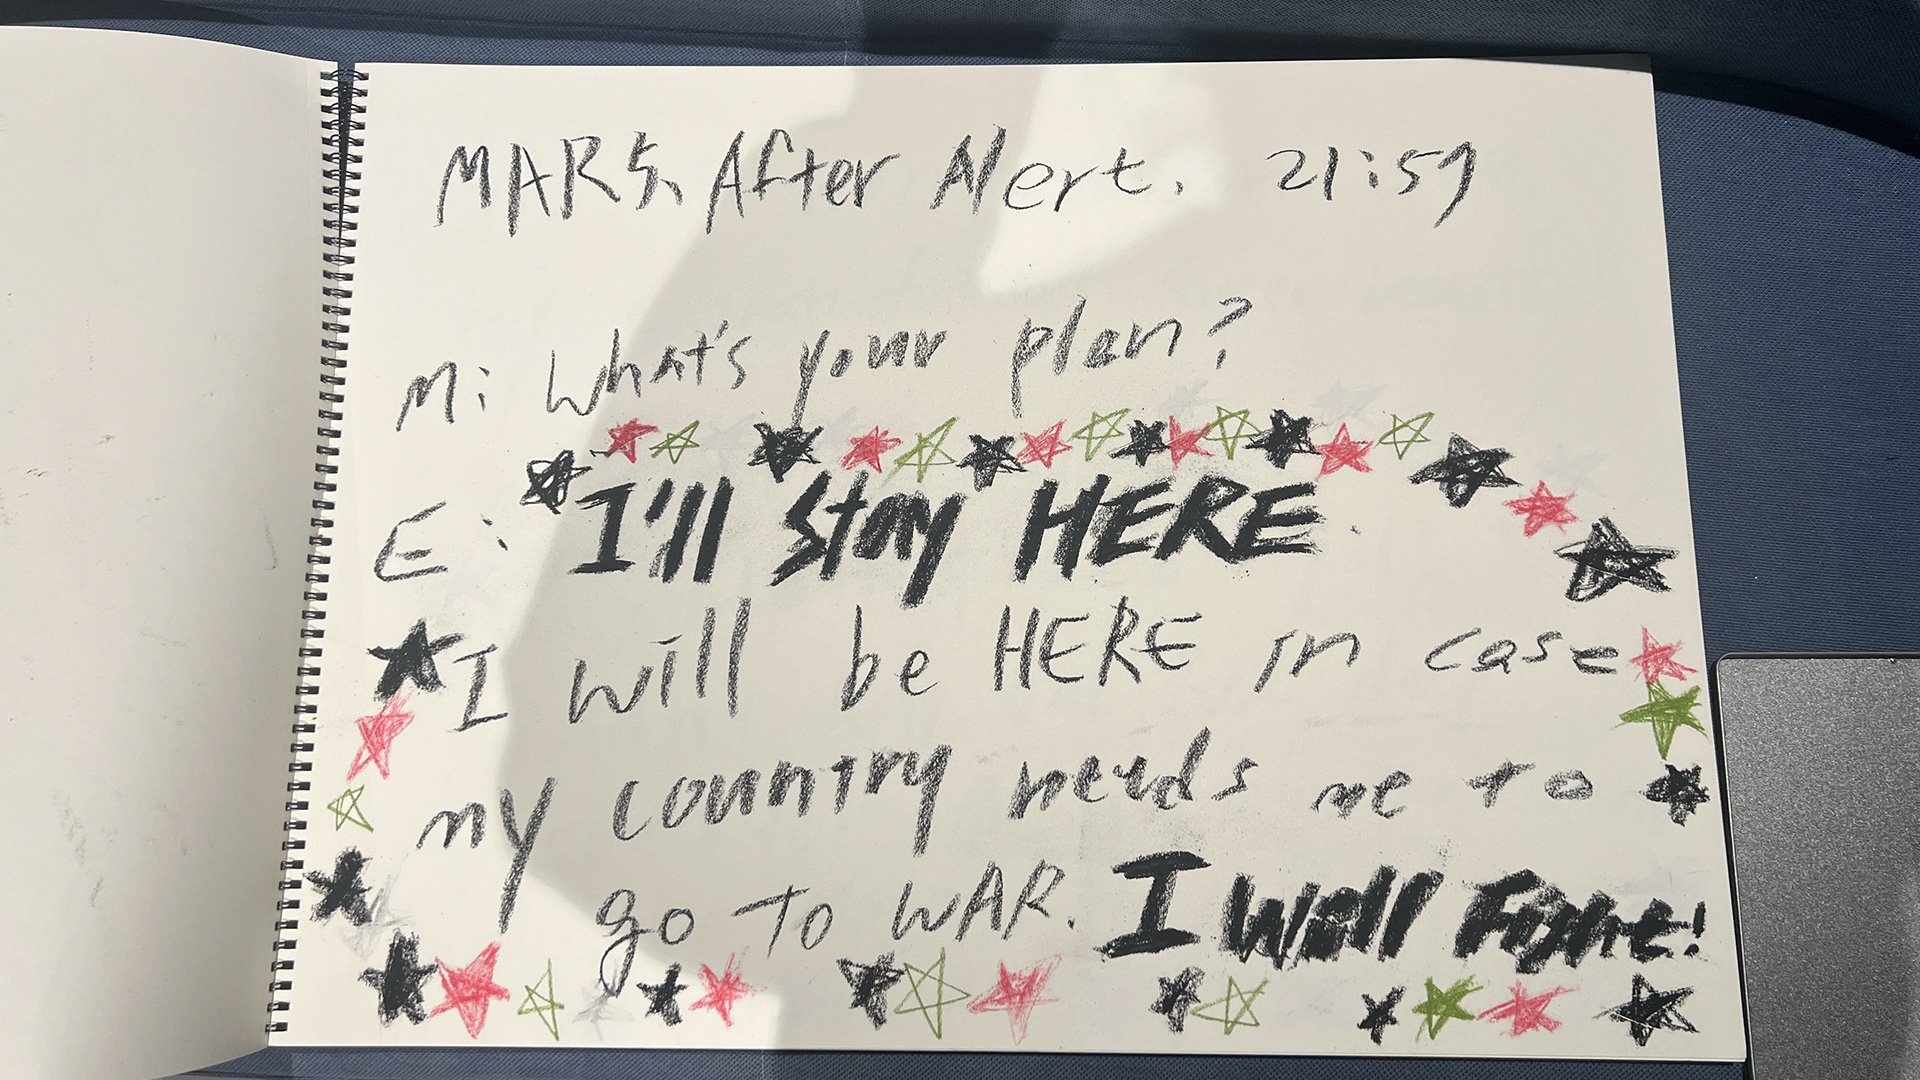 MAR 5, After Alert. 21:57
M: What's your plan?
E: I'll stay HERE.
I will be HERE in case
my country needs me to
go to WAR. I will Fight!